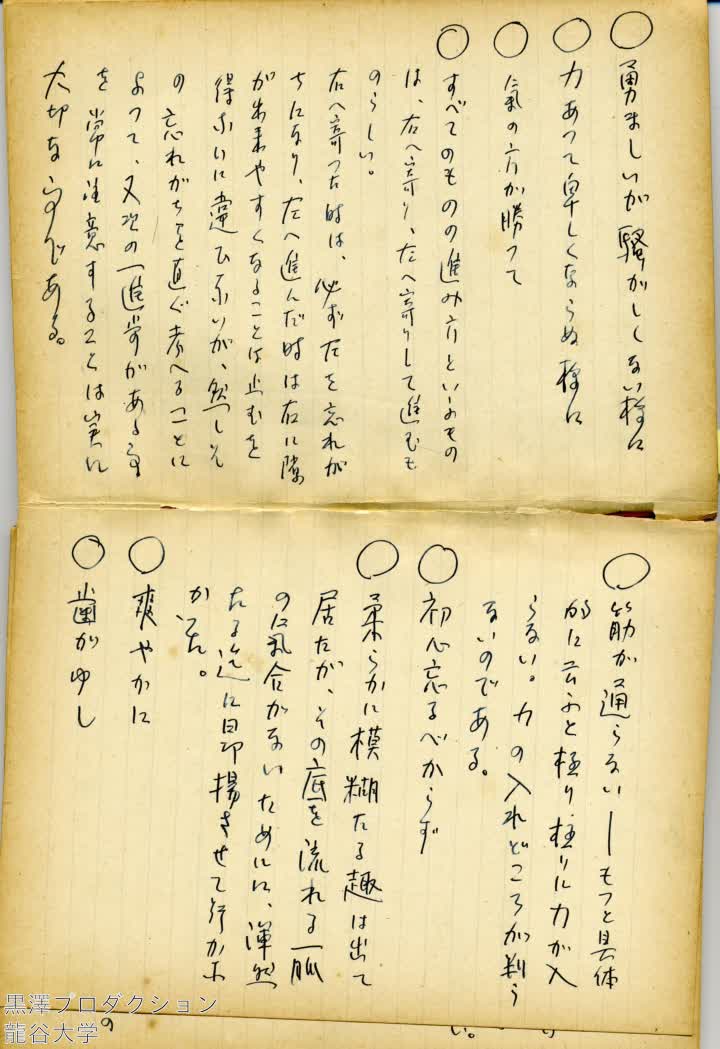 ○ 勇ましいが騒がしくない様に
○ 力あつて卑しくならぬ様に
○ 氣の方が勝つて
○ すべてのものの進み方といふもの
は、右へ寄り、左へ寄りして進むも
のらしい。
右へ寄つた時は、必ず左を忘れが
ちになり、左へ進んだ時は右に隙
が出来やすくなることは止むを
得ないに違ひないが、然しその
の忘れがちを直ぐ考へることに
よつて、又次の一進歩がある事
を常に注意することは実に
大切な事である。
○ 筋が通らない―もつと具体
的に云ふと極り極りに力が入
らない。力の入れどころが判ら
ないのである。
○ 初心忘るべからず
○ 柔らかに模糊たる趣は出て
居たが、その底を流れる一脈
の氣合がないために、渾然
たる迄に昂揚させて行かな
かつた。
○ 爽やかに
○ 歯がゆし
黒澤プロダクション
龍谷大学
の
い。